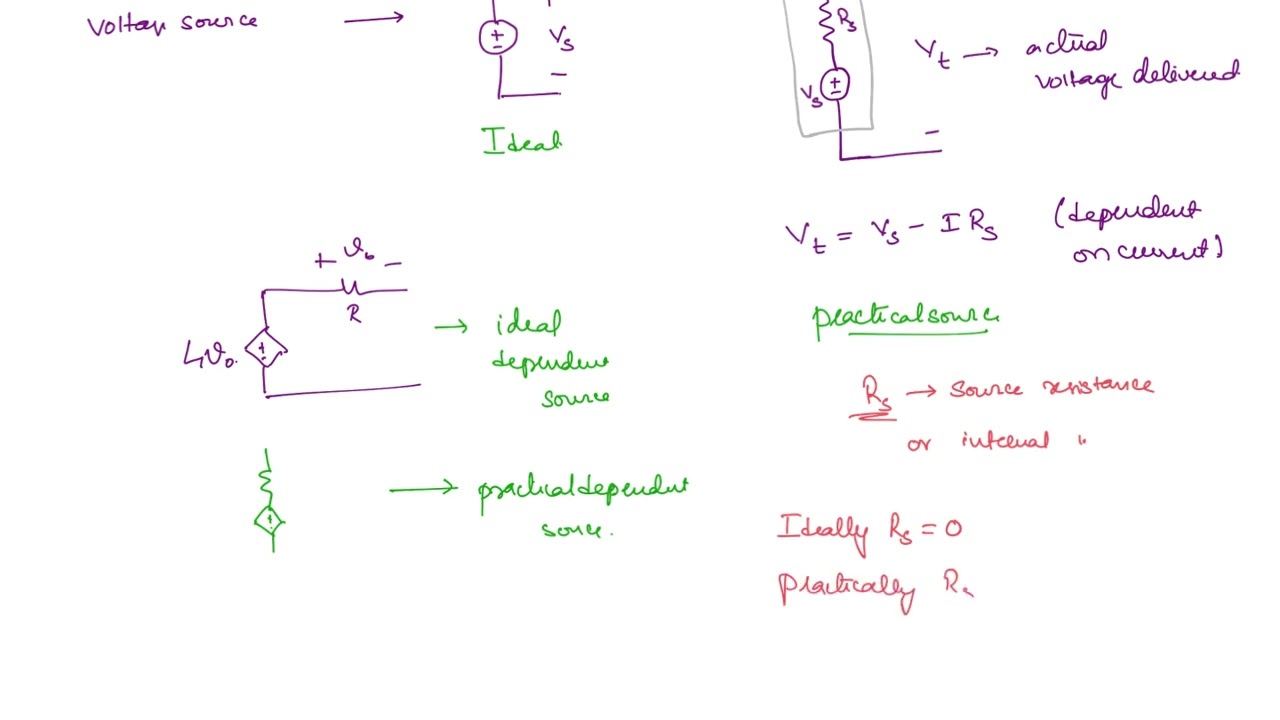 Voltage source →
+
-
Vs
-
Ideal
Rs
+
-
Vs
-
Vt → actual
voltage delivered
Vt = Vs - I Rs (dependent
on current)
practical source
Rs → source resistance
or internal "
Ideally Rs = 0
Practically Rs
+ v0 -
R
4v0
+
-
→ ideal
dependent
source
+
→ practical dependent
source.